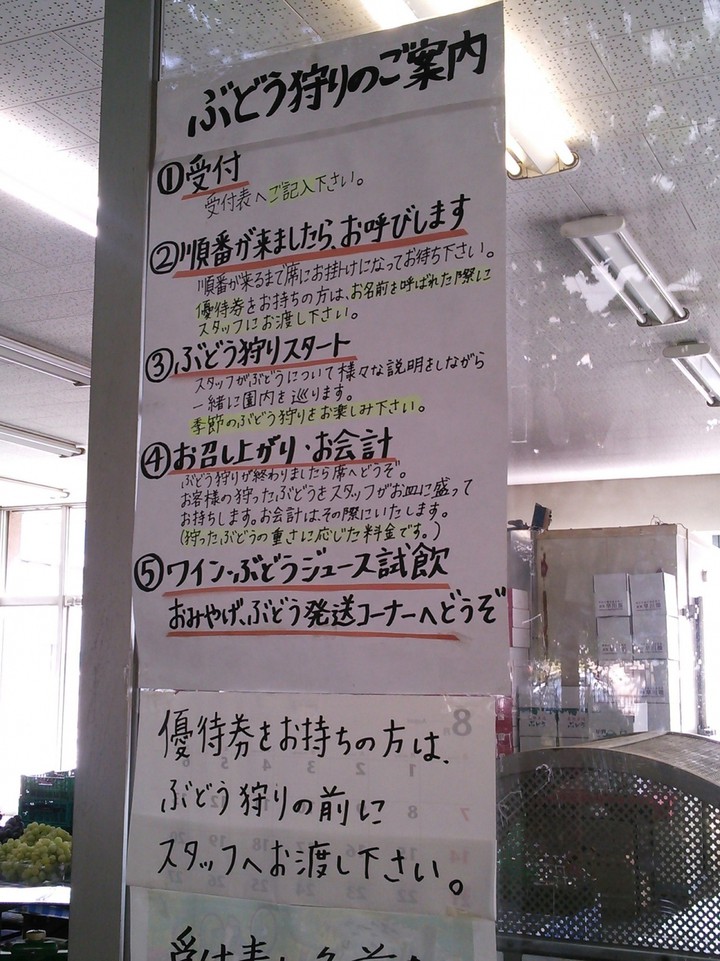 ぶどう狩りのご案内
①受付
受付表へご記入下さい。
②順番が来ましたら、お呼びします
順番が来るまで席にお掛けになってお待ち下さい。
優待券をお持ちの方は、お名前を呼ばれた際に
スタッフにお渡し下さい。
③ぶどう狩りスタート
スタッフがぶどうについて様々な説明をしながら
一緒に園内を巡ります。
季節のぶどう狩りをお楽しみ下さい。
④お召し上がり・お会計
ぶどう狩りが終わりましたら席へどうぞ。
お客様の狩ったぶどうをスタッフがお皿に盛って
お持ちします。お会計は、その際にいたします。
(狩ったぶどうの重さに応じた料金です。)
⑤ワイン・ぶどうジュース試飲
おみやげ、ぶどう発送コーナーへどうぞ
優待券をお持ちの方は、
ぶどう狩りの前に
スタッフへお渡し下さい。
受付表